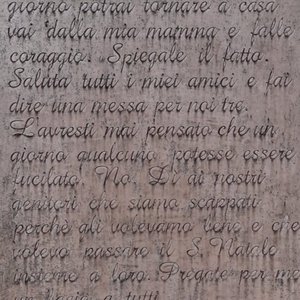 giorno potrai tornare a casa
vai dalla mia mamma e falle
coraggio. Spiegale il fatto.
Saluta tutti i miei amici e fai
dire una messa per noi tre.
L'avresti mai pensato che un
giorno qualcuno potesse essere
fucilato. No. Di ai nostri
genitori che siamo scappati
perchè gli volevamo bene e che
volevo passare il S. Natale
insieme a loro. Pregate per me
un bacio a tutti